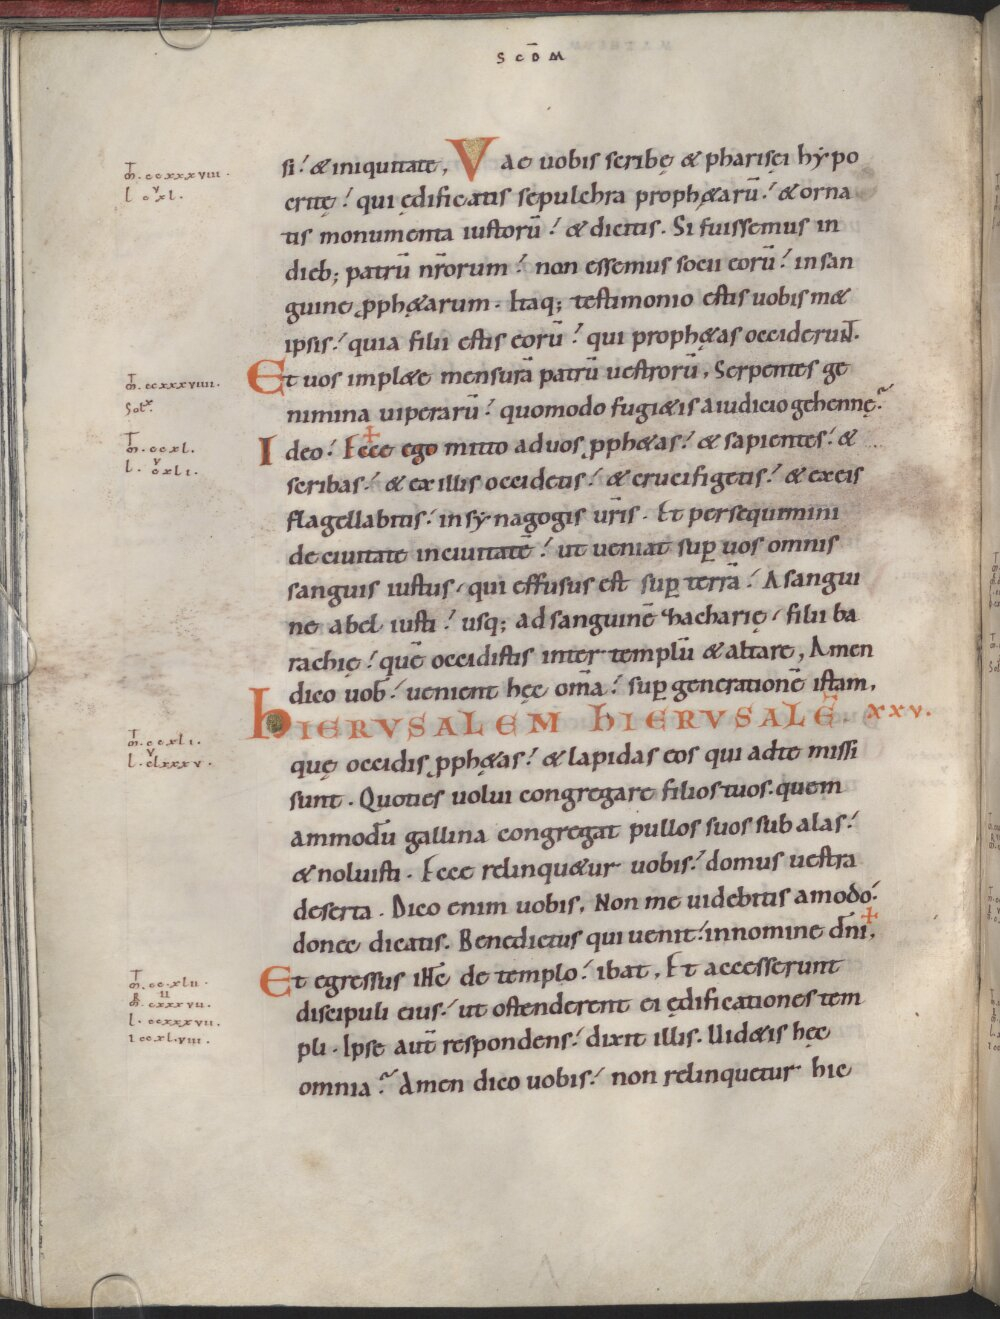 SCD̄M
si ⁊ & iniquitate, Vae uobis scribę & pharisęi hypo
critę ⁊ qui ędificatis sepulchra proph&arū ⁊ & orna
tis monumenta iustorū ⁊ & dicitis. Si fuissemus in
dieb; patrū nr̄orum ⁊ non essemus socii eorū ⁊ in san
guine ꝓph&arum. Itaq; testimonio estis uobism&
ipsis ⁊ quia filii estis eorū ⁊ qui proph&as occiderunt.
Et uos impl&e mensurā patrū uestrorū, Serpentes ge
nimina uiperarū ⁊ quomodo fugi&is a iudicio gehennę?
Ideo ⁊ Ecce ego mitto ad uos ꝓph&as ⁊ & sapientes ⁊ &
scribas ⁊ & ex illis occidetis ⁊ & crucifigetis ⁊ & ex eis
flagellabitis ⁊ in synagogis ur̄is. Et persequimini
de ciuitate in ciuitatē ⁊ ut ueniat suꝑ uos omnis
sanguis iustus, qui effusus est suꝑ terrā ⁊ A sangui
ne abel iusti ⁊ usq; ad sanguinē zacharię, filii ba
rachię ⁊ quē occidistis inter templū & altare, Amen
dico uob̄ ⁊ uenient hęc om̄a ⁊ suꝑ generationē istam,
HIERVSALEM HIERVSALĒ. xxv.
quę occidis ꝓph&as ⁊ & lapidas eos qui ad te missi
sunt. Quoties uolui congregare filios tuos. quem
ammodū gallina congregat pullos suos sub alas ⁊
& noluisti. Ecce relinqu&ur uobis ⁊ domus uestra
deserta. Dico enim uobis, Non me uidebitis amodo ⁊
donec dicatis. Benedictus qui uenit ⁊ in nomine dn̄i,
Et egressus ih̄c de templo ⁊ ibat, Et accesserunt
discipuli eius ⁊ ut ostenderent ei ędificationes tem
pli. Ipse aut̄ respondens ⁊ dixit illis. Uid&is hęc
omnia? Amen dico uobis ⁊ non relinquetur hic
m̄.ccxxxviii.
l cxl.
m̄.ccxxxviiii.
Sol.
m̄.ccxl.
l. cxli.
m̄.ccxli.
l. clxxv.
m̄.ccxlii.
m̄.cxxxvii.
l. ccxxxvii.